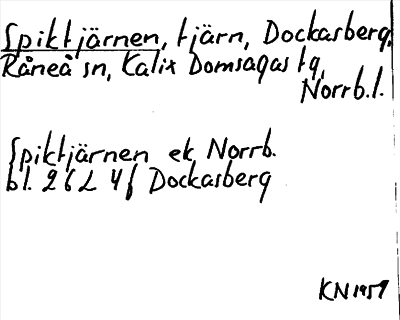 Spiktjärnen, tjärn, Dockasberg,
Råneå sn, Kalix Domsagas tg,
Norrb.l.
Spiktjärnen ek Norrb.
bl. 26L 4f Dockasberg
KN 1957